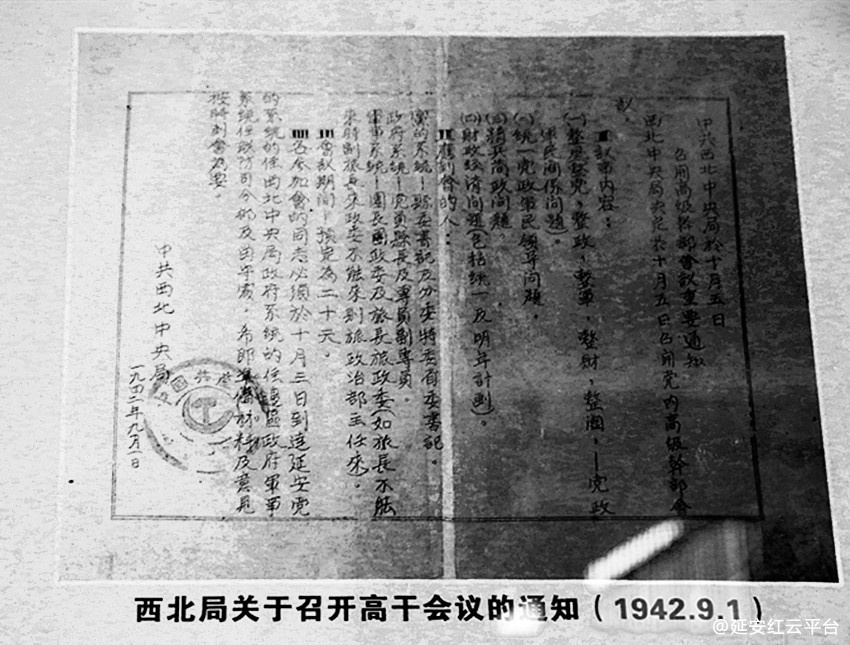 中共西北中央局於十月五日
召開高級幹部會議重要通知
西北中央局決定於十月五日召開党內高級幹部會
議。
議事內容：
(一)整風整党，整政，整軍，整財，整関，—党政
軍民関係問題)。
統一党政軍民領導問題。
(三)精兵簡政問題。
(四)財政経済問題(包括統一及明年計劃)。
應到會的人：
党的系統—縣委書記及分委特委省委書記。
政府系統—党員縣長及專員副專員。
軍事系統—團長團政委及旅長旅政委(如旅長不能
來時副旅長來政委不能來則旅政治部主任來。
會議期間—預定為二十天。
各參加會的同志必須於十月三日到達延安党
的系統的住西北中央局政府系統的住邊區政府軍事
系統住联防司令部及留守處。希即準備材料及意見
按時到會為要。
中共西北中央局
一九四二年九月一日
西北局关于召开高干会议的通知（1942.9.1）
@延安红云平台